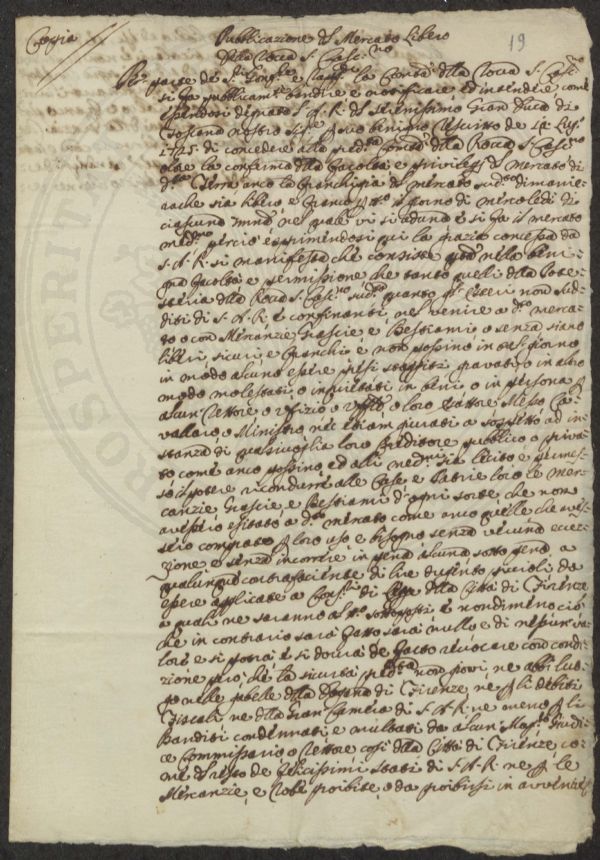 Copia
Pubblicazione del Mercato Libero
19
della Rocca S. Casc:no
Per parte de SS. Gonf:re e della Com:tà della Rocca S. Casc:no
si fa pubblicam:te bandire e notificare ed intendere come
essendosi degnato S. A. R. il Serenissimo Gran Duca di
Toscana nostro Sig:re suo benigno rescritto de Lug:o
1725. di concedere alla pred:a Com:tà della Rocca S. Casc:no
oltre la conferma della facoltà e privilegj di Mercato di
d:a Terra anco la franchigia di mercato sud:o dimanie-
rache sia libero e franco il giorno di mercoledì di
ciascuna nel quale vi si aduna e si fa il mercato
med:mo perciò esprimendosi qui la grazia concessa da
S. A. R. si manifesta che consiste nella beni-
gna facoltà e permissione che tanto quelli della Pote-
steria della Rocca S. Casc:no sud:a quanto Esteri non sud-
diti di S. A. R. e confinanti, nel venire a d:o merca-
to o con Mercanzie Grascie e Bestiami o senza siano
liberi, sicuri e franchi e non possino in tal giorno
in modo alcuno essere presi staggiti gravati o in altro
modo molestati, o inquietati in beni o in persona p
alcun Rettore o Ufizio o Uffle o loro Esattore Messo Ca-
vallaro o Ministro nè etiam giurati a sospetto ad in-
stanza di qualsivoglia loro Creditore pubblico o priva-
to come anco possino, ed alli med:mi sia lecito e permes-
so il potere ricondurre alle Case e Patrie loro le mer-
canzie Grascie e Bestiami d'ogni sorte che non
avessero esitato a d:o mercato come anco quelle che aves-
sero comprato p loro uso e bisogno senza veruna eccez-
zione e senza incorrere in pena alcuna sotto pena a
qualunque contrafaciente di lire dugento piccioli da
essere applicate a Cons:ri di della Città di Firenze
a quali ne saranno al e nondimeno ciò
che in contrario sarà fatto sarà nullo e di nessun va-
lore e si potrà e si dovrà de facto revocare con condi-
zione però, che la sicurtà pred:a non giovi, ne abbi luo-
go nelle gabelle della Dogana di Firenze, ne p li debiti
Fiscali, ne della Gran Camera di S. A. R. ne meno p li
Banditi condennati e multati da alcun Mag:to Giudi-
ce Commissario o Rettore così della Città di Firenze, co-
me del resto de felicissimi stati di S. A. R. ne p le
Mercanzie, e Robe proibite, o da proibirsi in avvenire